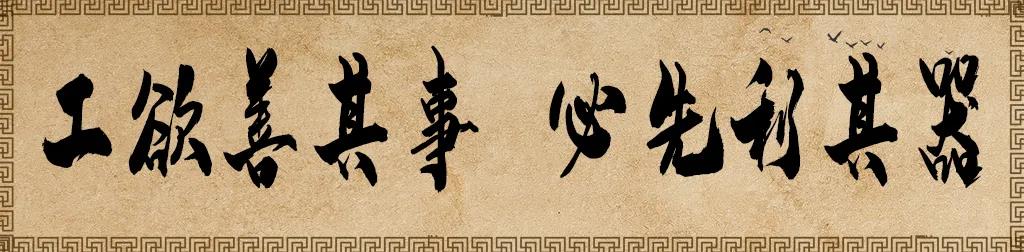 工欲善其事 必先利其器